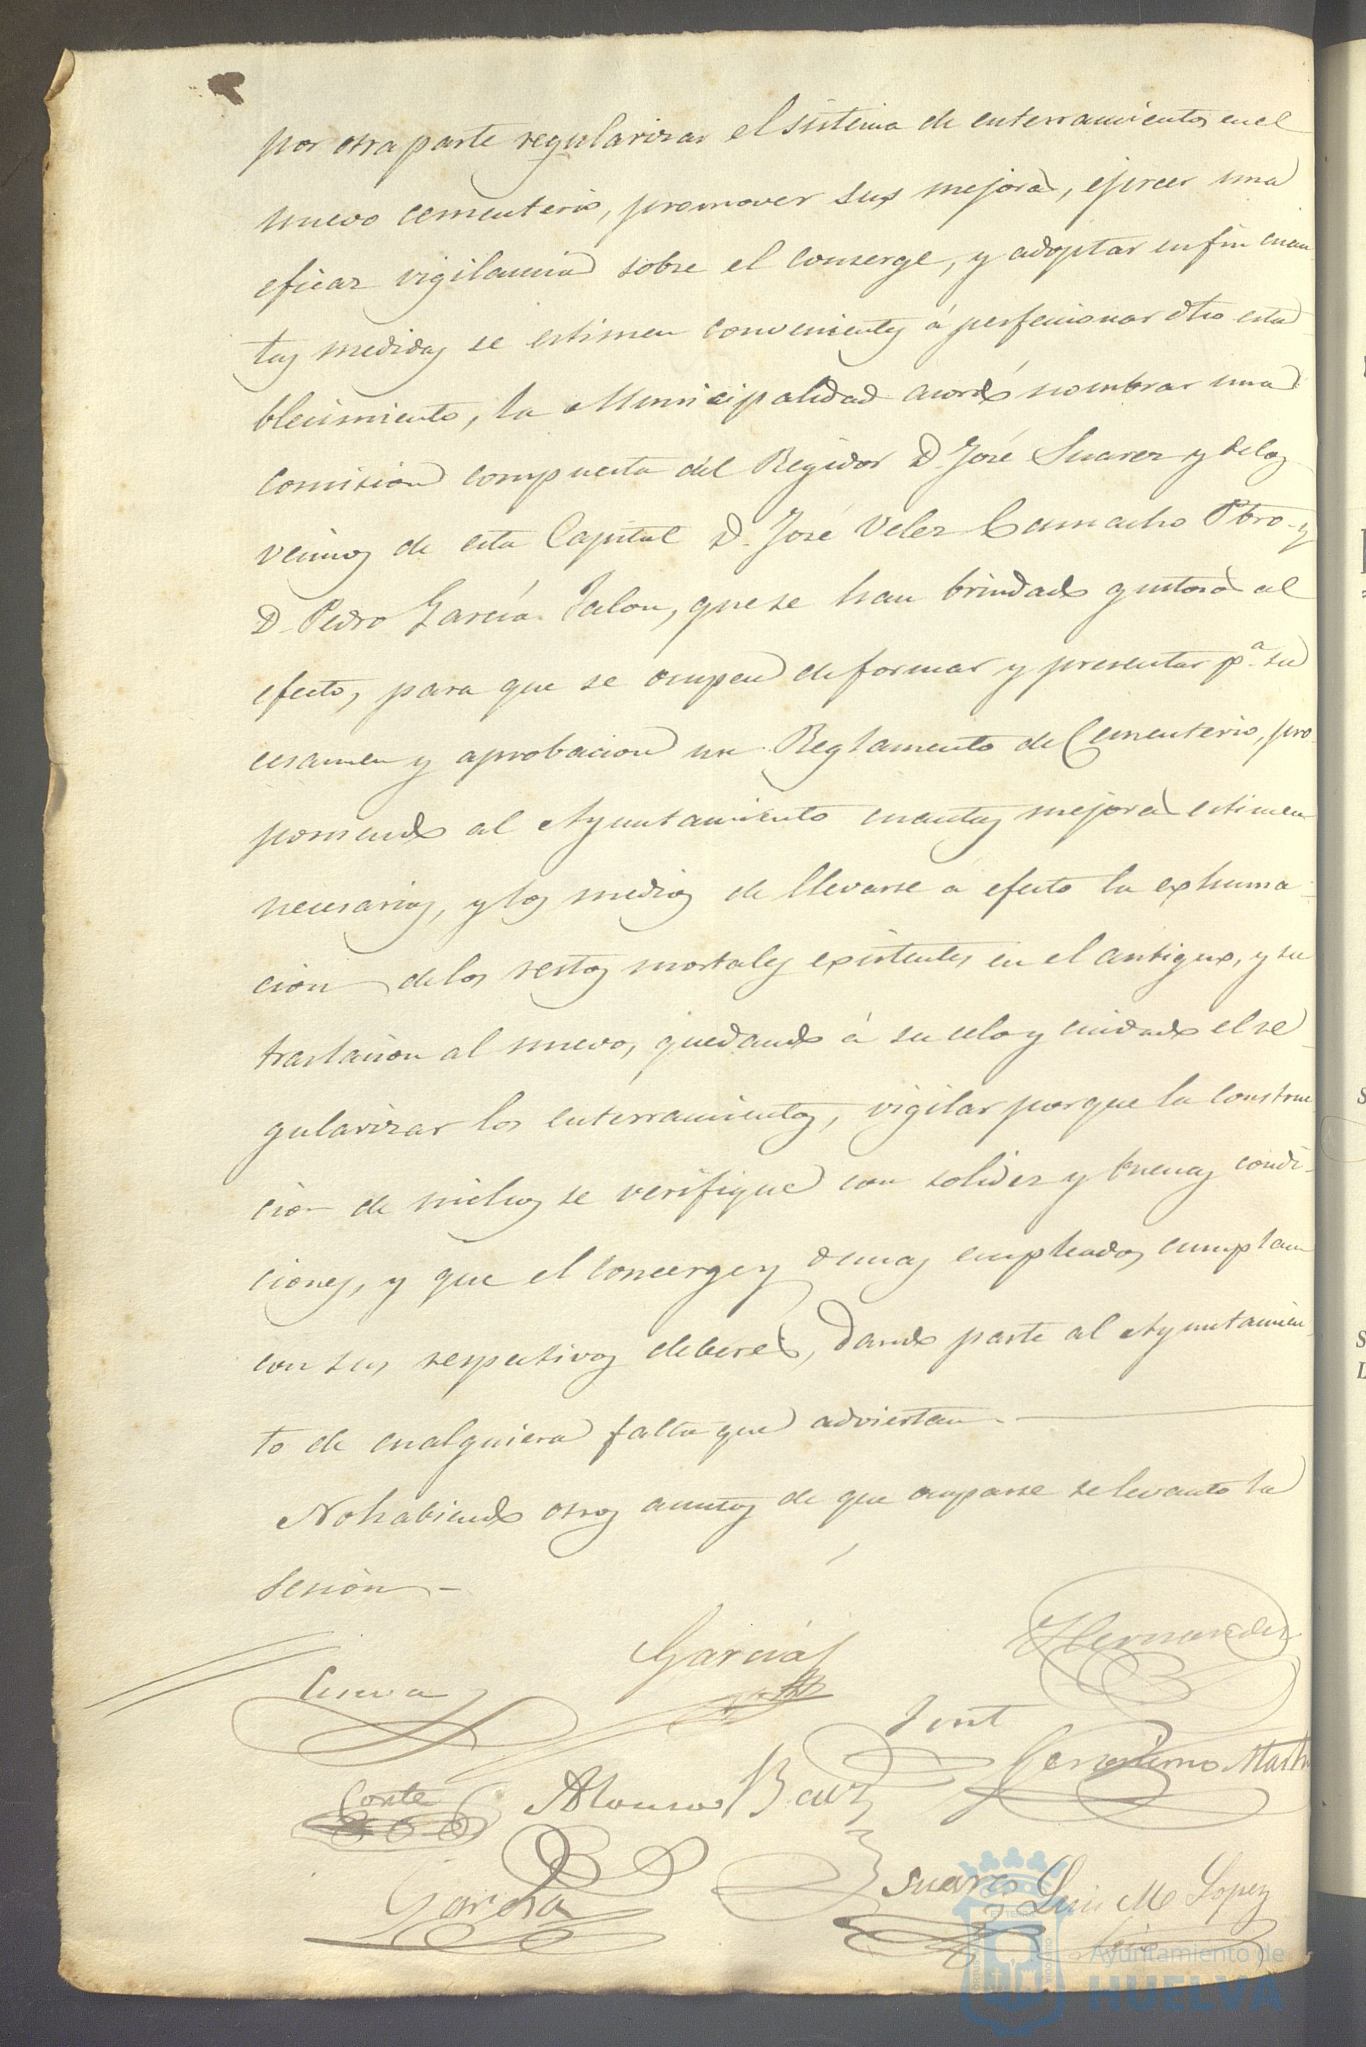 por otra parte regularizar el sistema de enterramientos en el
nuevo cementerio, promover sus mejoras, ejercer una
eficaz vigilancia sobre el conserge, y adoptar en fin cuan
tas medidas se estimen convenientes á perfecionar dho esta
blecimiento, la Municipalidad acordó nombrar una
comision compuesta del Regidor D. José Suarez y de los
vecinos de esta Capital D. José Velez Camacho Pbro. y
D. Pedro García Jalon, que se han brindado gustosos al
efecto, para que se ocupen de formar y presentar pª su
ecsamen y aprobacion un Reglamento de Cementerio, pro
poniendo al Ayuntamiento cuantas mejoras estimen
necesarias, y los medios de llevarse á efecto la exhuma-
cion de los restos mortales existentes en el antiguo, y su
traslacion al nuevo, quedando á su celo y cuidado el re
gularizar los enterramientos, vigilar porque la construc
cion de nichos se verifique con solidez y buenas condi-
ciones, y que el concerge y demas empleados cumplan
con sus respectivos deberes, dando parte al Ayuntamien
to de cualquiera falta que adviertan.
No habiendo otros asuntos de que ocuparse se levantó la
sesion
Garcia Hernandez
Cueva
Jeronimo Martin
Conte Alonso
Garcia Suarez Luis M Lopez
Ayuntamiento de
HUELVA